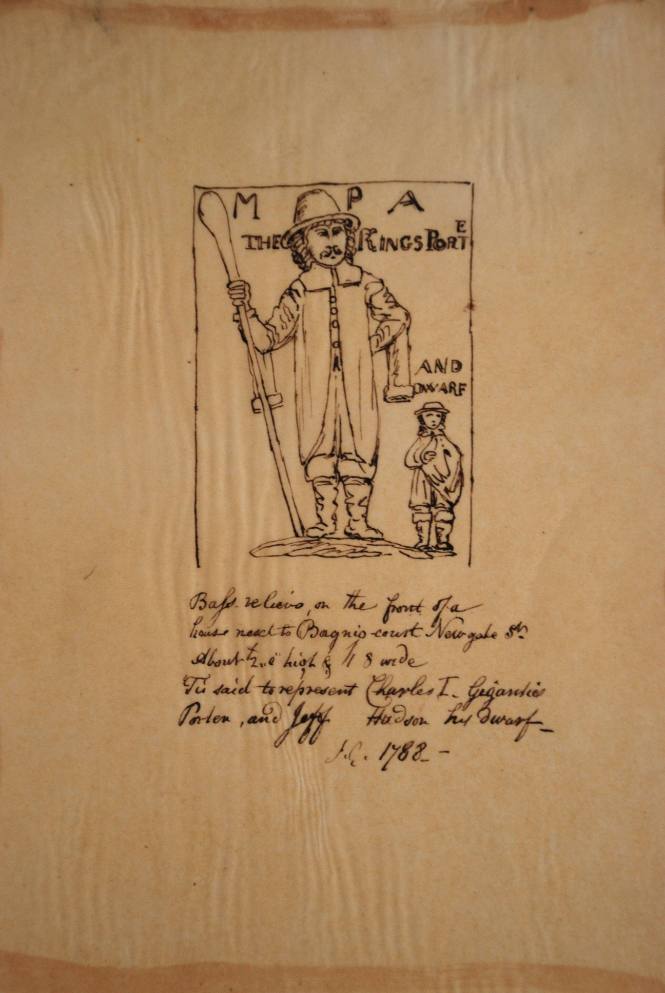 M P A
THE KINGS PORTE
AND
DWARF
Bass relievo, on the front of a
house next to Bagnio court Newgate St.
About high & wide
Tis said to represent Charles I. Gigantic
Porter, and Jeff Hudson his dwarf
1788 –